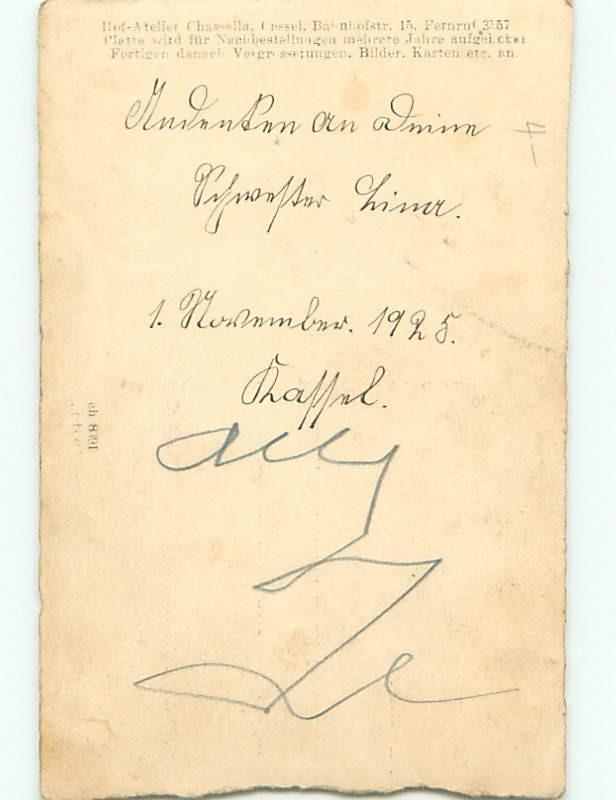 Hof-Atelier Chassella, Cassel, Bahnhofstr. 15, Fernruf 3557
Platte wird für Nachbestellungen mehrere Jahre aufgehoben
Fertigen danach Vergrösserungen, Bilder, Karten etc. an.
Andenken an Deine
Schwester Lina.
1. November. 1925.
Kassel.